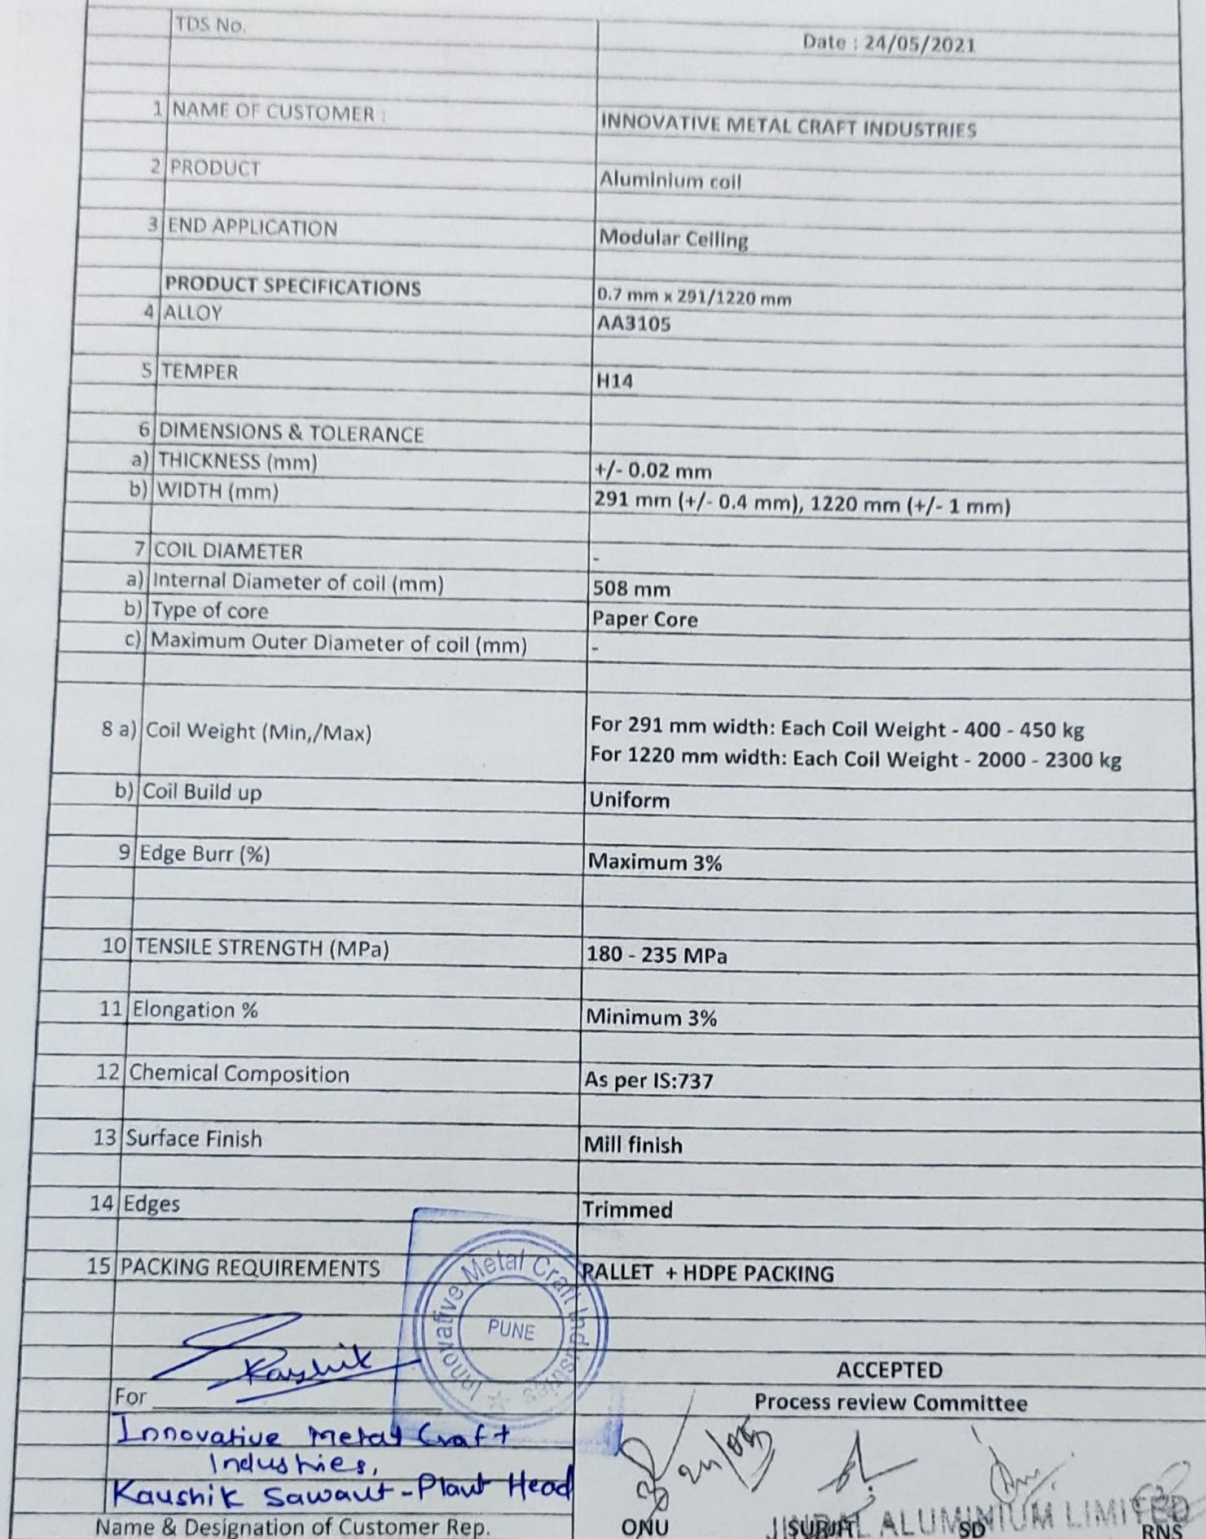 TDS No.
Date : 24/05/2021
1 NAME OF CUSTOMER : INNOVATIVE METAL CRAFT INDUSTRIES
2 PRODUCT Aluminium coil
3 END APPLICATION Modular Ceiling
PRODUCT SPECIFICATIONS 0.7 mm x 291/1220 mm
4 ALLOY AA3105
5 TEMPER H14
6 DIMENSIONS & TOLERANCE
a) THICKNESS (mm) +/- 0.02 mm
b) WIDTH (mm) 291 mm (+/- 0.4 mm), 1220 mm (+/- 1 mm)
7 COIL DIAMETER -
a) Internal Diameter of coil (mm) 508 mm
b) Type of core Paper Core
c) Maximum Outer Diameter of coil (mm) -
8 a) Coil Weight (Min,/Max) For 291 mm width: Each Coil Weight - 400 - 450 kg
For 1220 mm width: Each Coil Weight - 2000 - 2300 kg
b) Coil Build up Uniform
9 Edge Burr (%) Maximum 3%
10 TENSILE STRENGTH (MPa) 180 - 235 MPa
11 Elongation % Minimum 3%
12 Chemical Composition As per IS:737
13 Surface Finish Mill finish
14 Edges Trimmed
15 PACKING REQUIREMENTS PALLET + HDPE PACKING
Innovative Metal Craft Industries
PUNE
Kaushik
ACCEPTED
For
Process review Committee
Innovative Metal Craft
Industries,
24/05
Kaushik Sawant - Plant Head
ALUMINIUM LIMITED
Name & Designation of Customer Rep. ONU SURJIT SD RNS